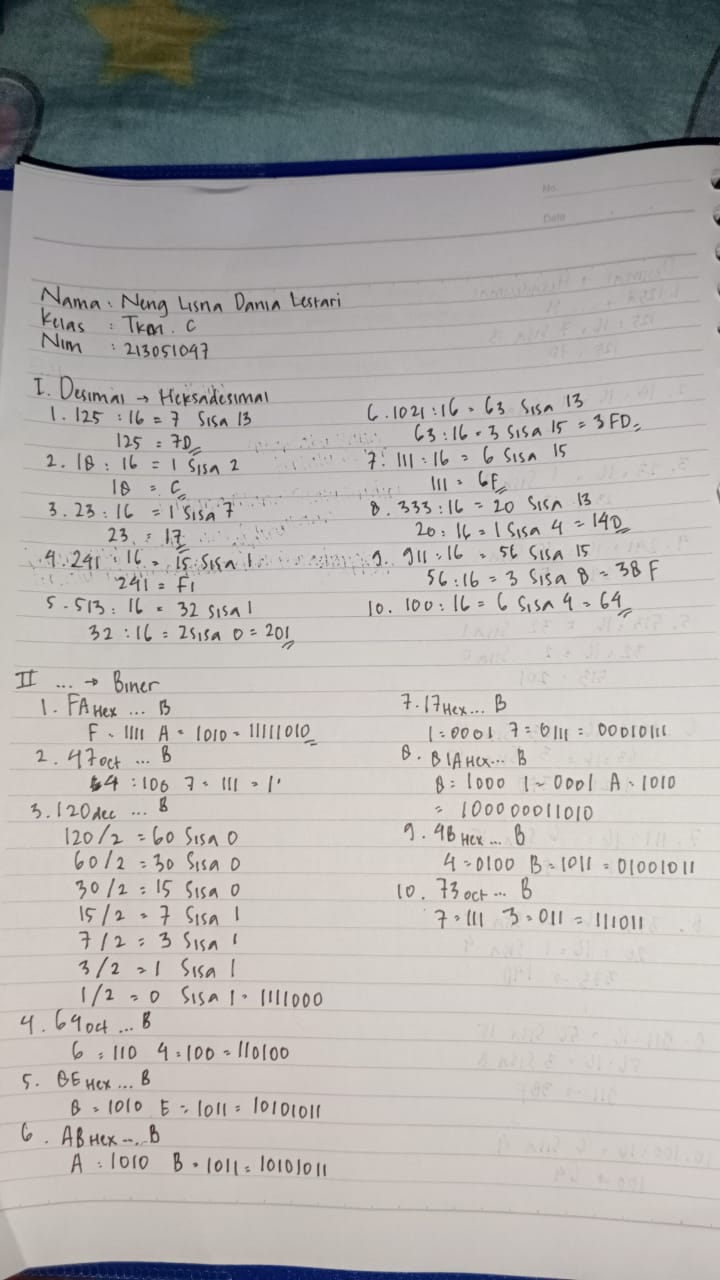 No.
Date
Nama : Neng Lisna Dania Lestari
Kelas : Tkm. C
Nim : 213051047
I. Desimal → Heksadesimal
1. 125 : 16 = 7 Sisa 13
125 = 7D
2. 18 : 16 = 1 Sisa 2
18 = C
3. 23 : 16 = 1 Sisa 7
23 = 17
4. 241 : 16 = 15 Sisa 1
241 = F1
5. 513 : 16 = 32 sisa 1
32 : 16 = 2 sisa 0 = 201
6. 1021 : 16 = 63 Sisa 13
63 : 16 = 3 Sisa 15 = 3FD
7. 111 : 16 = 6 Sisa 15
111 = 6F
8. 333 : 16 = 20 Sisa 13
20 : 16 = 1 Sisa 4 = 14D
9. 911 : 16 = 56 Sisa 15
56 : 16 = 3 Sisa 8 = 38F
10. 100 : 16 = 6 Sisa 4 = 64
II ... → Biner
1. FA Hex ... B
F = 1111 A = 1010 = 11111010
2. 47 oct ... B
4 : 100 7 = 111 = 1
3. 120 dec ... B
120/2 = 60 Sisa 0
60/2 = 30 Sisa 0
30/2 = 15 Sisa 0
15/2 = 7 Sisa 1
7/2 = 3 Sisa 1
3/2 = 1 Sisa 1
1/2 = 0 Sisa 1 = 1111000
4. 64 oct ... B
6 = 110 4 = 100 = 110100
5. 8E Hex ... B
8 = 1010 E = 1011 = 10101011
6. AB Hex ... B
A : 1010 B = 1011 = 10101011
7. 17 Hex ... B
1 = 0001 7 = 0111 = 00010111
8. 81A Hex ... B
8 = 1000 1 = 0001 A = 1010
= 100000011010
9. 4B Hex ... B
4 = 0100 B = 1011 = 01001011
10. 73 oct ... B
7 = 111 3 = 011 = 111011